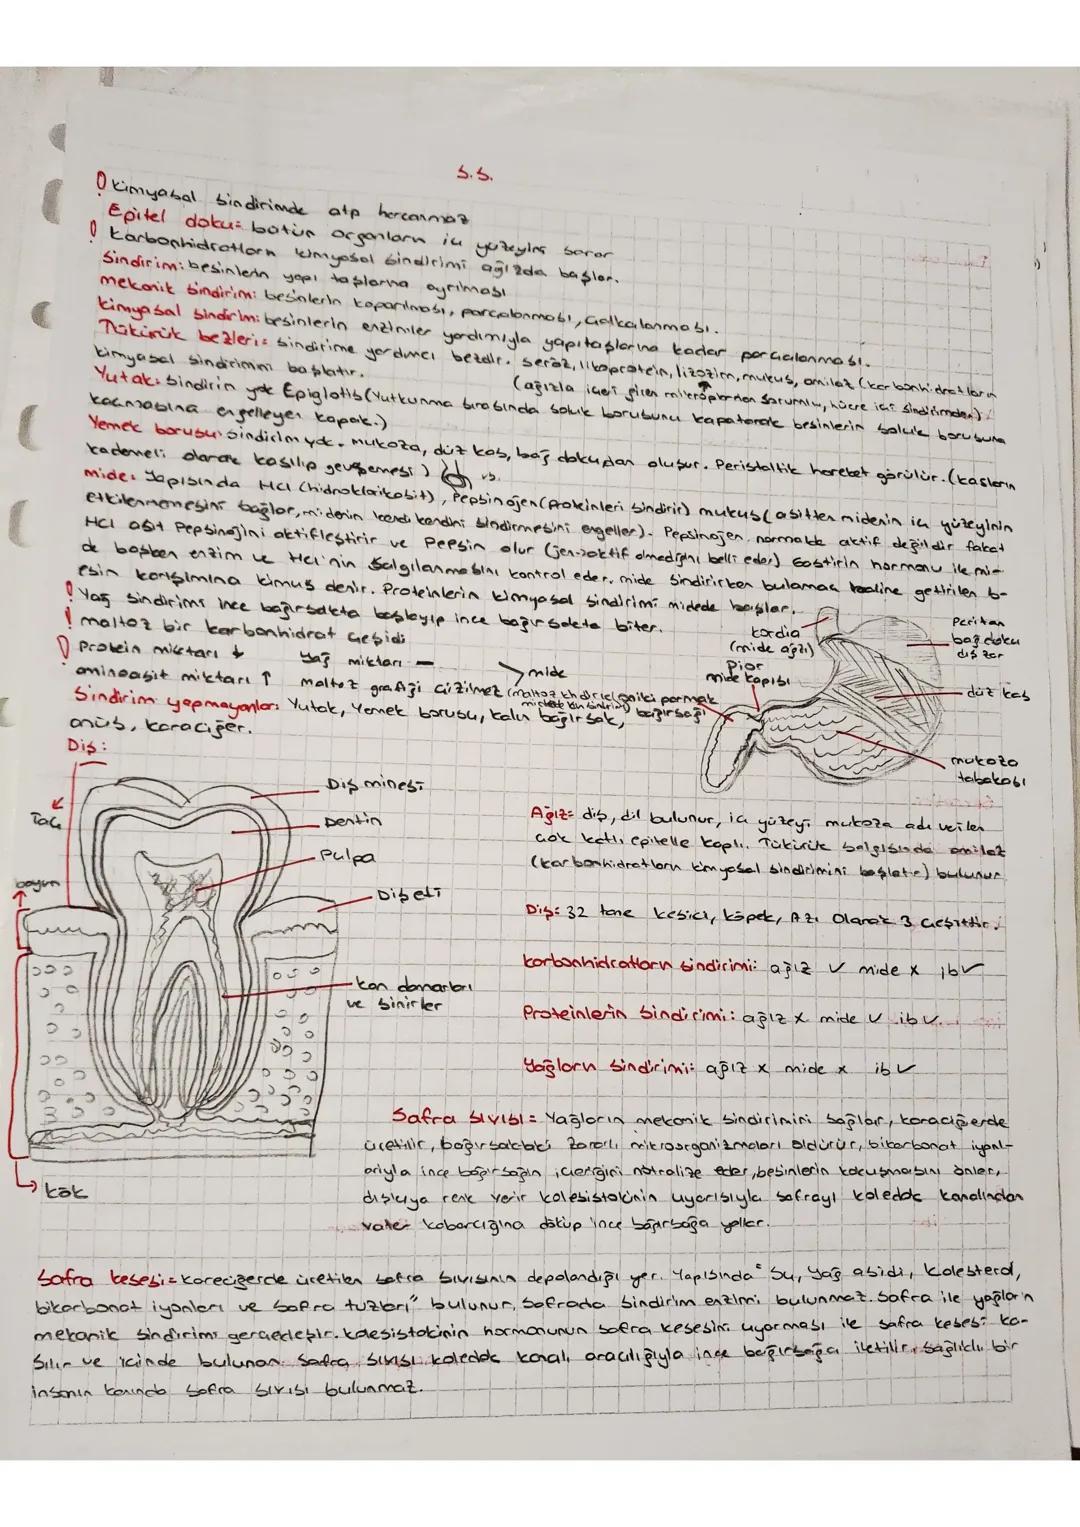 S.S.
! kimyasal sindirimde atp harcanmaz
Epitel doku: bütün organların iç yüzeyini sarar
! karbonhidratların kimyasal sindirimi ağızda başlar.
Sindirim: besinlerin yapı taşlarına ayrılması
mekanik sindirim: besinlerin koparılması, parçalanması, çalkalanması.
kimyasal sindirim: besinlerin enzimler yardımıyla yapıtaşlarına kadar parçalanması.
Tükürük bezleri: sindirime yardımcı bezdir. seröz, likoprotein, lizozim, mukus, amilaz (karbonhidratların
kimyasal sindirimini başlatır.
(ağızla içeri giren mikroplardan sorumlu, hücre içi sindirimden)
Yutak: sindirim yok Epiglotis (Yutkunma sırasında soluk borusunu kapatarak besinlerin soluk borusuna
kaçmasına engelleyen kapak.)
Yemek borusu: sindirim yok. mukoza, düz kas, bağ dokudan oluşur. Peristaltik hareket görülür. (kasların
kademeli olarak kasılıp gevşemesi)
mide: Yapısında HCl (hidroklorikasit), Pepsinojen (proteinleri sindirir) mukus (asitten midenin iç yüzeyinin
etkilenmemesini sağlar, midenin kendi kendini sindirmesini engeller). Pepsinojen normalde aktif değildir fakat
HCl asit Pepsinojini aktifleştirir ve Pepsin olur (jen→aktif olmadığını belli eder) Gastirin hormonu ile mi-
de başken enzim ve HCl'nin salgılanmasını kontrol eder. mide sindirirken bulamaç haline getirilen b-
esin karışımına kimus denir. Proteinlerin kimyasal sindirimi midede başlar.
! Yağ sindirimi ince bağırsakta başlayıp ince bağırsakta biter.
! maltoz bir karbonhidrat çeşidi
! Protein miktarı ↓ Yağ miktarı — > mide
aminoasit miktarı ↑ maltoz grafiği çizilmez
Sindirim yapmayanlar: Yutak, Yemek borusu, kalın bağırsak,
anüs, karaciğer.
kardia
(mide ağzı)
Pilor
mide kapısı
oniki parmak
bağırsağı
Peritan
bağ doku
dış zar
düz kas
mukoza
tabakası
Diş:
Taç
boyun
kök
Diş minesi
Dentin
Pulpa
Dişeti
kan damarları
ve sinirler
Ağız= diş, dil bulunur, iç yüzeyi mukoza adı verilen
çok katlı epitelle kaplı. Tükürük salgısında amilaz
(karbonhidratların kimyasal sindirimini başlatır) bulunur
Diş: 32 tane kesici, köpek, Azı olarak 3 çeşittir.
karbonhidratların sindirimi: ağız ✓ mide x ib ✓
Proteinlerin sindirimi: ağız x mide ✓ ib ✓
Yağların sindirimi: ağız x mide x ib ✓
Safra sıvısı= Yağların mekanik sindirimini sağlar, karaciğerde
üretilir, bağırsaktaki zararlı mikroorganizmaları öldürür, bikarbonat iyonl-
arıyla ince bağırsağın içeriğini nötralize eder, besinlerin kokuşmasını önler,
dışkıya renk verir kolesistokinin uyarısıyla safrayı koledok kanalından
vater kabarcığına döküp ince bağırsağa yollar.
Safra kesesi= karaciğerde üretilen safra sıvısının depolandığı yer. Yapısında "Su, yağ asidi, kolesterol,
bikarbonat iyonları ve safra tuzları" bulunur, Safrada sindirim enzimi bulunmaz. Safra ile yağların
mekanik sindirimi gerçekleşir. kolesistokinin hormonunun safra kesesini uyarması ile safra kesesi ka-
sılır ve içinde bulunan safra sıvısı koledok kanalı aracılığıyla ince bağırsağa iletilir. Sağlıklı bir
insanın kanında safra sıvısı bulunmaz.